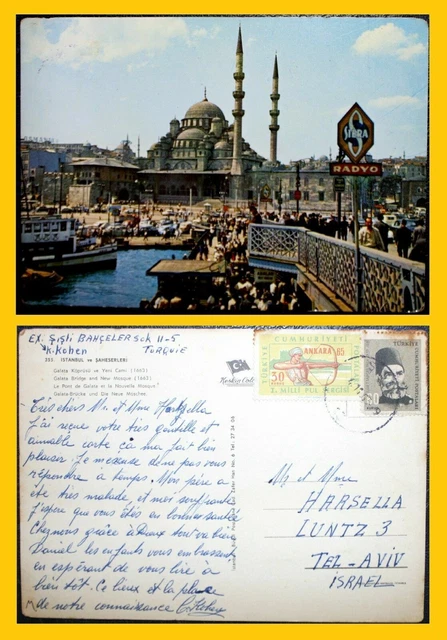 SIERA
RADYO
EX. Şişli BAHÇELER sok 11-5
K. Kohen TURQUIE
353. İSTANBUL ve ŞAHESERLERİ
Galata Köprüsü ve Yeni Cami. (1663)
Galata Bridge and New Mosque (1663)
Le Pont de Galata et la Nouvelle Mosquée
Galata-Brücke und Die Neue Moschee
Keskin Color
TÜRKİYE
ANKARA 65
50
2. MİLLİ PUL SERGİSİ
TÜRKİYE
30
Très chers Mr. et Mme
J'ai reçue votre très gentille et
aimable carte ça ma fait bien
plaisir. Je m'excuse de ne pas vous
répondre a temps. Mon père a
été très malade, et moi souffrante
J'espère que vous êtes en bonne santé
Chez nous grâce à Dieux tout va bien
Daniel les enfants vous embrassent
en espérant de vous lire à
bien tôt. Ce lieux et la place
de notre connaissance C. Kohen
Mr et Mme
HARSELLA
LUNTZ 3
TEL-AVIV
ISRAEL